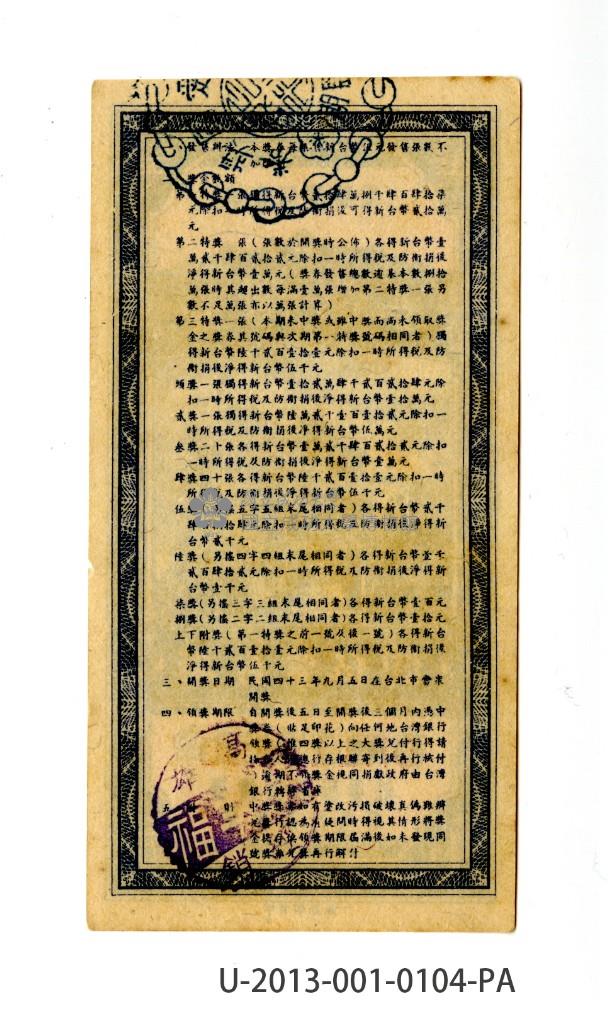 發售辦法 本獎券每張售新台幣伍元發售張數不
加
獎金數額
第一特獎一張獨得新台幣貳拾肆萬捌千肆百肆拾柒
元除扣一時所得稅及防衛捐後可得新台幣貳拾萬
元
第二特獎 張(張數於開獎時公佈)各得新台幣壹
萬貳千肆百貳拾貳元除扣一時所得稅及防衛捐後
淨得新台幣壹萬元(獎券發售總數逾基本數捌拾
萬張時其超出數每滿壹萬張增加第二特獎一張另
數不足萬張亦以萬張計算)
第三特獎一張(本期未中獎或雖中獎而尚未領取獎
金之獎券其號碼與次期第一特獎號碼相同者)獨
得新台幣陸千貳百壹拾壹元除扣一時所得稅及防
衛捐後淨得新台幣伍千元
頭獎一張獨得新台幣壹拾貳萬肆千貳百貳拾肆元除
扣一時所得稅及防衛捐後淨得新台幣壹拾萬元
貳獎一張獨得新台幣陸萬貳千壹百壹拾貳元除扣一
時所得稅及防衛捐後淨得新台幣伍萬元
叁獎二十張各得新台幣壹萬貳千肆百貳拾貳元除扣
一時所得稅及防衛捐後淨得新台幣壹萬元
肆獎四十張各得新台幣陸千貳百壹拾壹元除扣一時
所得稅及防衛捐後淨得新台幣伍千元
伍獎 五字五組末尾相同者)各得新台幣貳千
肆百 拾肆元除扣一時所得稅及防衛捐後淨得新
台幣貳千元
陸獎(另搖四字四組末尾相同者)各得新台幣壹千
貳百肆拾貳元除扣一時所得稅及防衛捐後淨得新
台幣壹千元
柒獎(另搖三字三組末尾相同者)各得新台幣壹百元
捌獎(另搖二字二組末尾相同者)各得新台幣
上下附獎(第一特獎之前一號及後一號)各得新台
幣陸千貳百壹拾壹元除扣一時所得稅及防衛捐後
淨得新台幣伍千元
三、開獎日期 民國四十三年九月五日在台北市當眾
開獎
四、領獎期限 自開獎後五日至開獎後三個月內憑中
獎券(貼足印花)向任何地台灣銀行
領獎(惟四獎以上之大獎兌付行得請
行存根聯寄到後再行核付
)逾期 獎金視同捐獻政府由台灣
銀行
五 則 中獎獎券如有塗改污損破壞真偽難辨
行認為有疑問時得視其情形將獎
金提存俟領獎期限屆滿後如未發現同
號獎券兌獎再行解付
高
雄
福
銷
U-2013-001-0104-PA